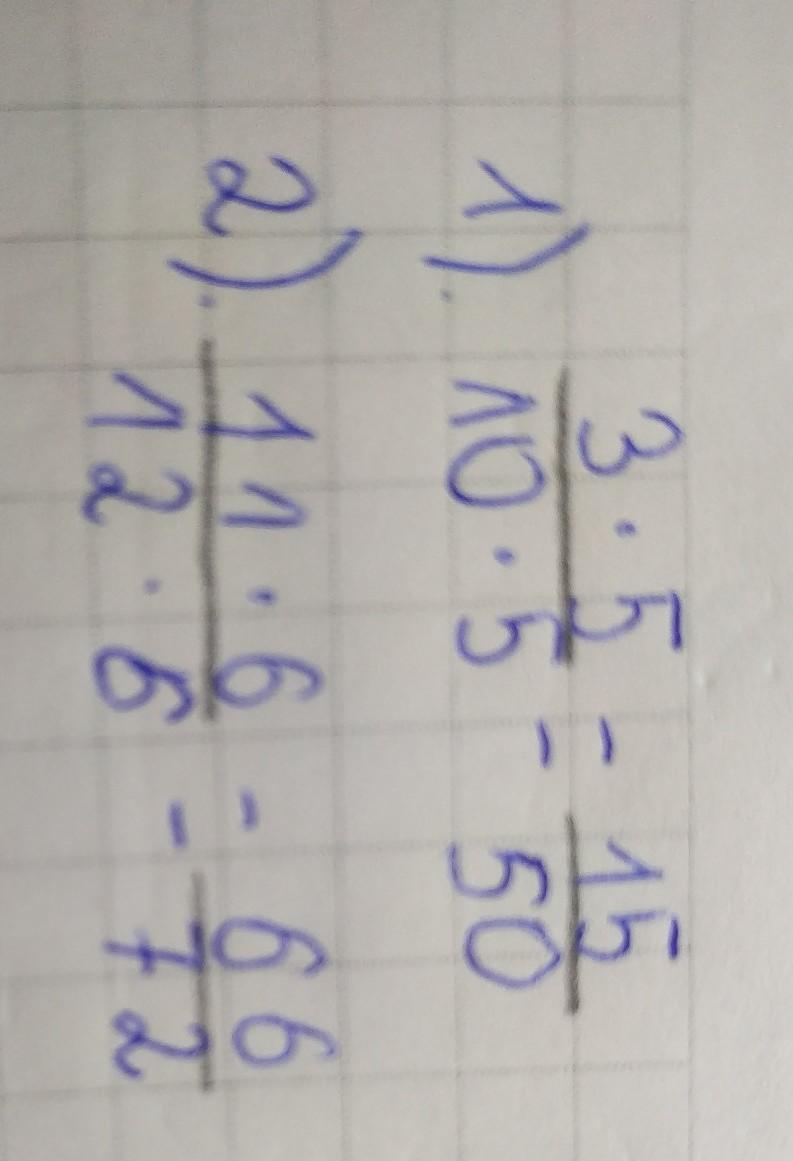 1). 3·5/10·5 = 15/50
2). 11·6/12·6 = 66/72